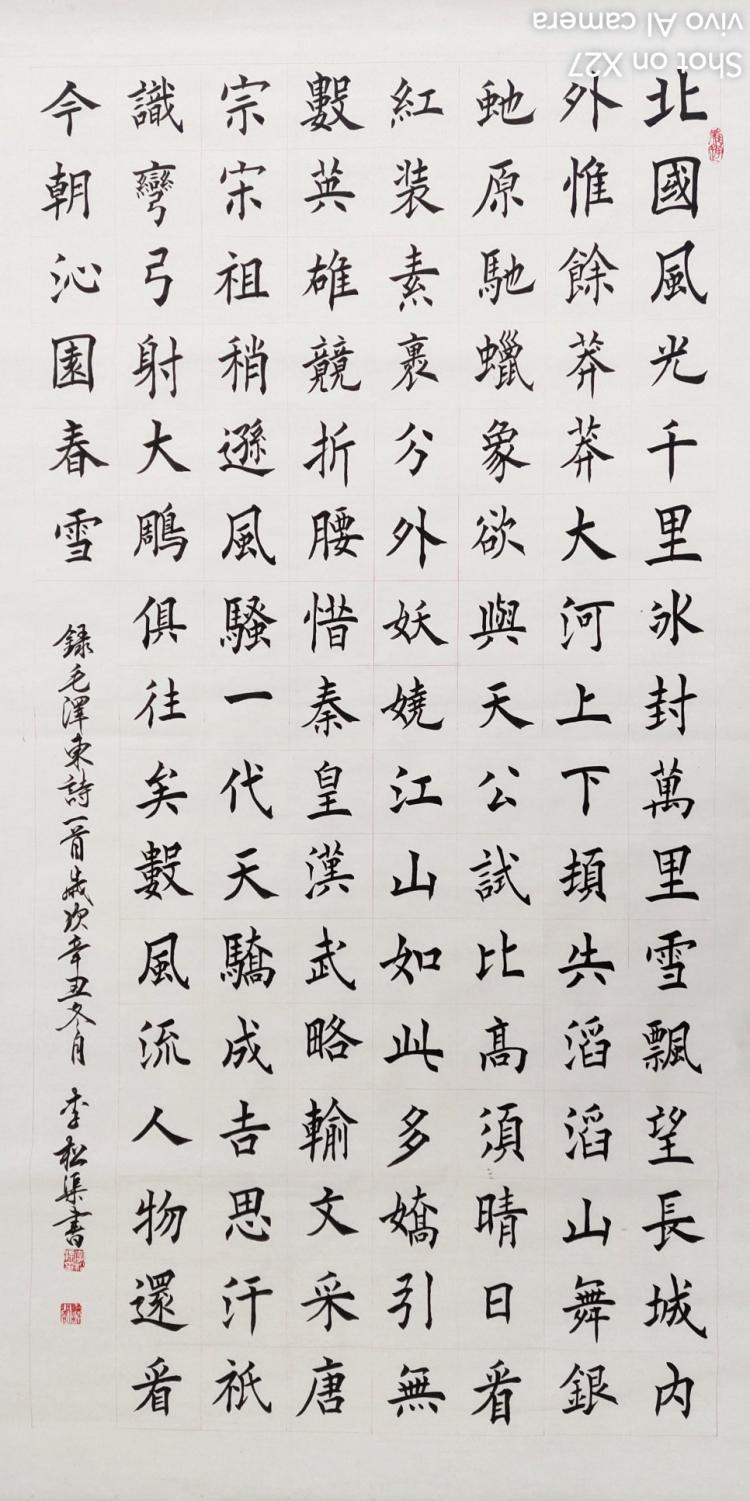 北國風光千里冰封萬里雪飄望長城內
外惟餘莽莽大河上下頓失滔滔山舞銀
虵原馳蠟象欲與天公試比高須晴日看
紅裝素裹分外妖嬈江山如此多嬌引無
數英雄競折腰惜秦皇漢武略輸文采唐
宗宋祖稍遜風騷一代天驕成吉思汗祇
識彎弓射大鵰俱往矣數風流人物還看
今朝沁園春雪
錄毛澤東詩一首歲次辛丑冬月 李松渠書
Shot on X27
vivo AI camera